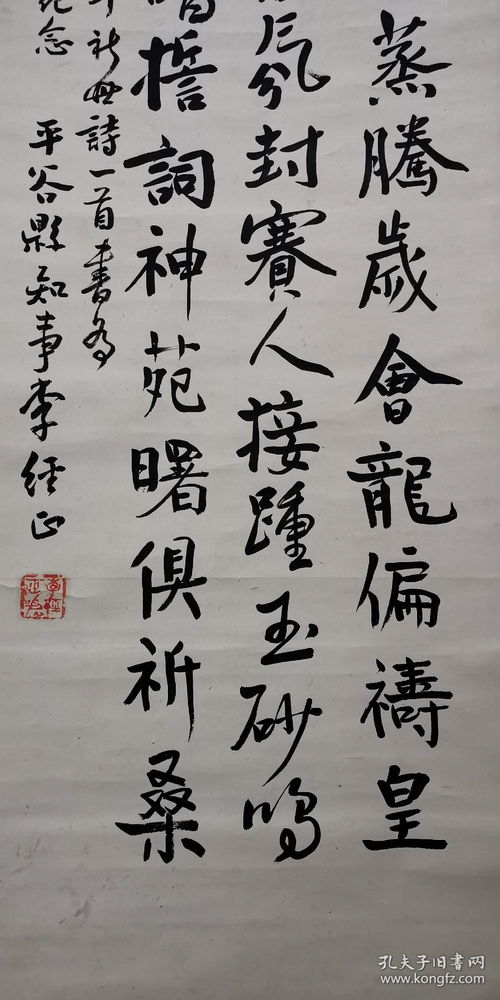 蒸騰歲會龍偏禱皇
氛封賽人接踵玉砂鳴
誓詞神苑曙俱祈桑
年新世詩一首書為
紀念 平谷縣知事李經正
孔夫子旧書网
www.kongfz.com